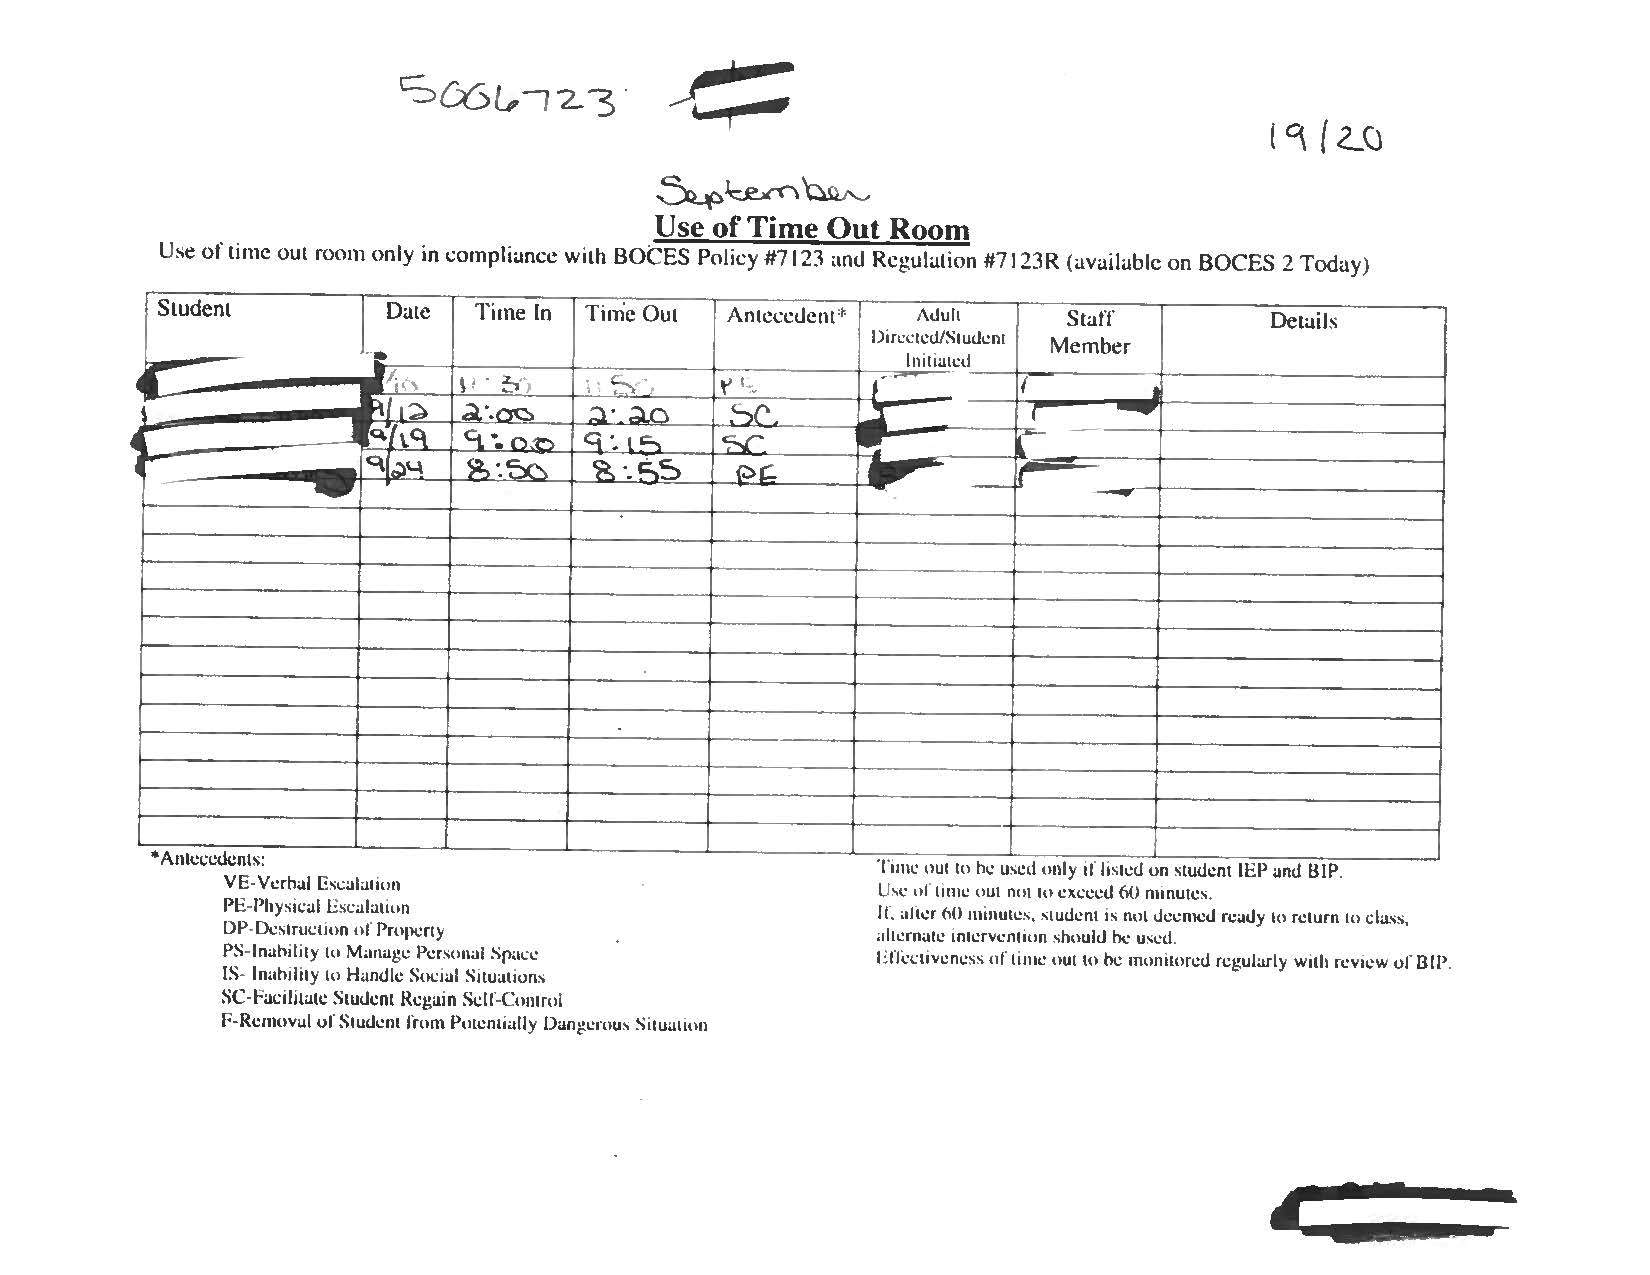 5006723
19/20
September
Use of Time Out Room
Use of time out room only in compliance with BOCES Policy #7123 and Regulation #7123R (available on BOCES 2 Today)
Student Date Time In Time Out Antecedent* Adult Directed/Student Initiated Staff Member Details
11:30 11:50 PE
9/12 2:00 2:20 SC
9/19 9:00 9:15 SC
9/24 8:50 8:55 PE
*Antecedents:
VE-Verbal Escalation
PE-Physical Escalation
DP-Destruction of Property
PS-Inability to Manage Personal Space
IS- Inability to Handle Social Situations
SC-Facilitate Student Regain Self-Control
F-Removal of Student from Potentially Dangerous Situation
Time out to be used only if listed on student IEP and BIP.
Use of time out not to exceed 60 minutes.
If, after 60 minutes, student is not deemed ready to return to class,
alternate intervention should be used.
Effectiveness of time out to be monitored regularly with review of BIP.